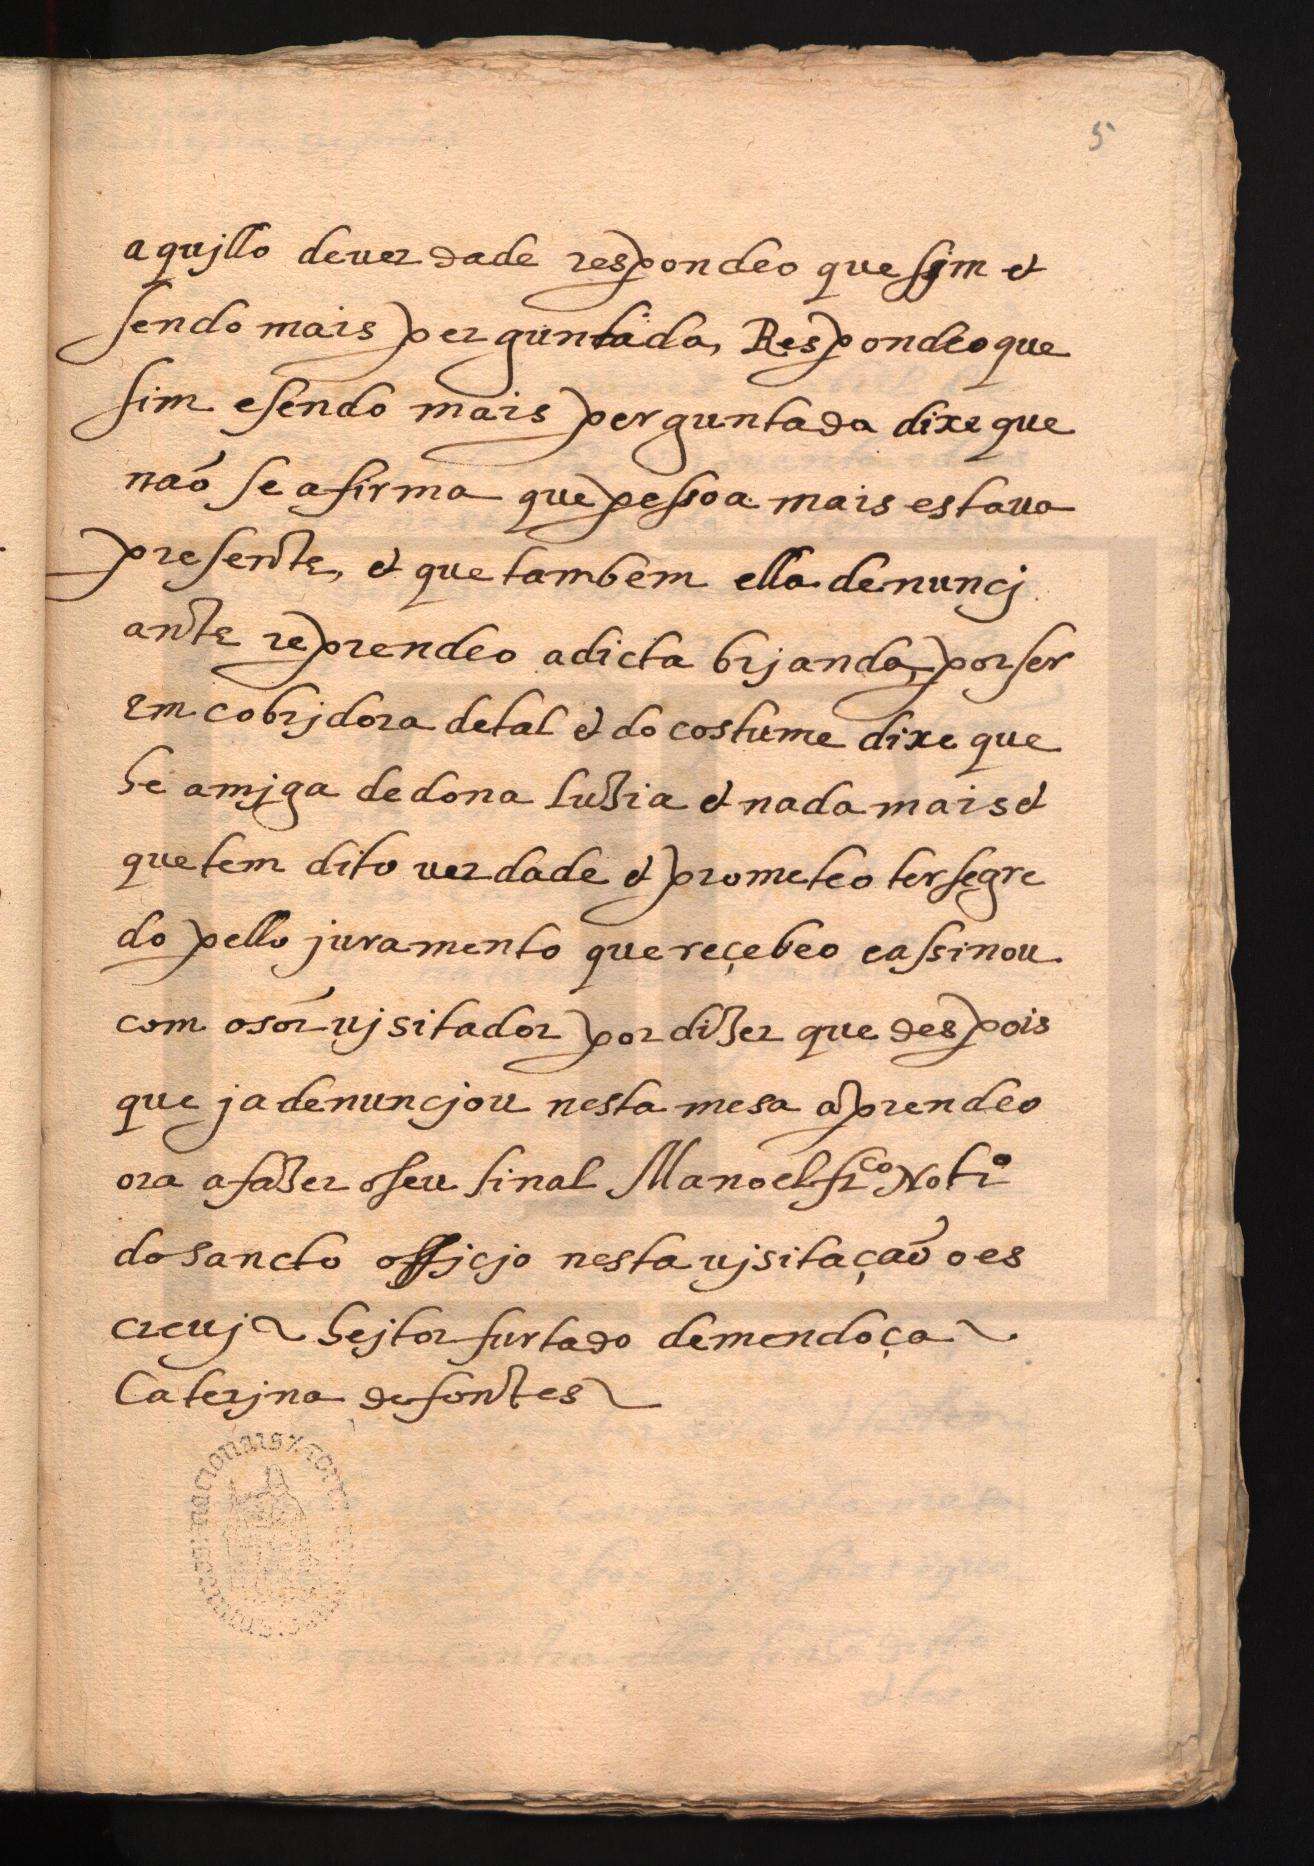 5
aqujllo de verdade respondeo que sjm et
sendo mais perguntada, Respondeo que
sim e sendo mais perguntada dixe que
não se afirma que pessoa mais estava
presente, et que tambem ella denuncj
ante reprendeo a dicta brjanda, por ser
emcobrjdora de tal et do costume dixe que
he amjga de dona luzia et nada mais et
que tem dito verdade et prometeo ter segre
do pello juramento que reçebeo e assinou
com o sõr vjsitador por dizer que despois
que ja denuncjou nesta mesa aprendeo
ora a fazer o seu sinal Manoel frco Notro
do sancto officjo nesta vjsitação o es
crevj ~ hejtor furtado de mendoça ~
Caterjna de fontes ~